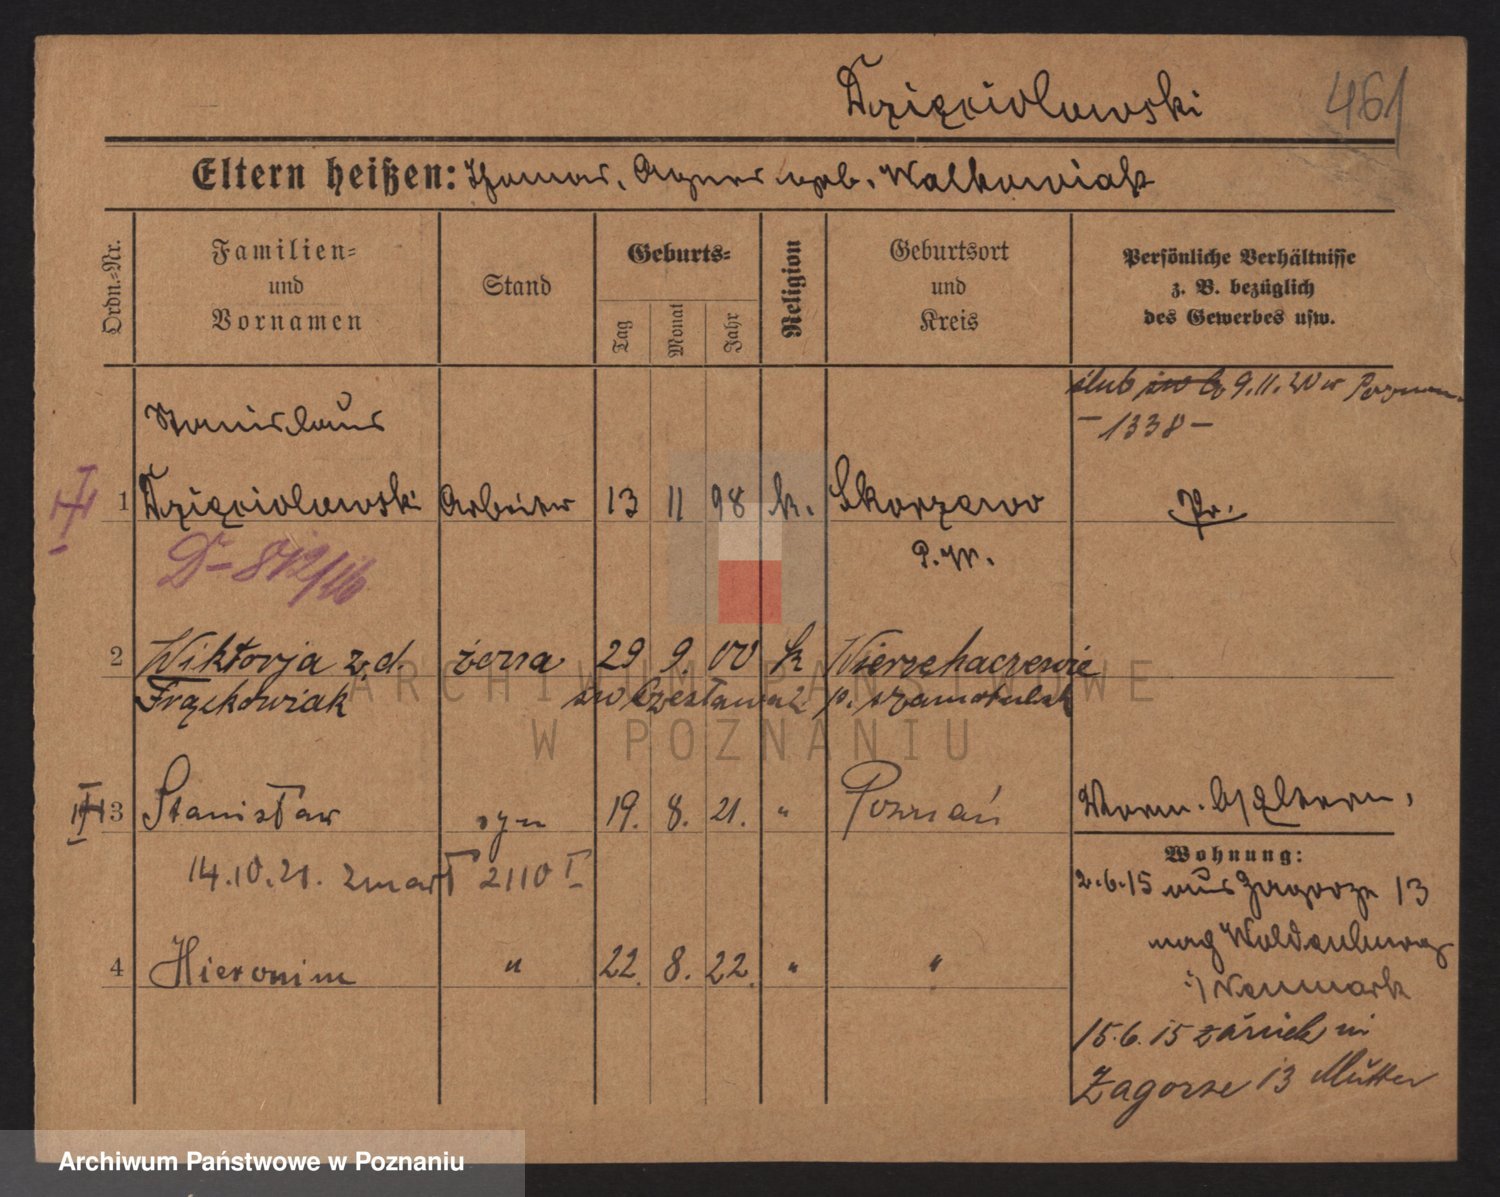 Dzięciolowski 461
Eltern heißen: Thomas, Agnes geb. Walkowiak
Ordn.-Nr.
Familien-
und
Vornamen
Stand
Geburts-
Tag
Monat
Jahr
Religion
Geburtsort
und
Kreis
Persönliche Verhältnisse
z. B. bezüglich
des Gewerbes usw.
ślub 9.11.20 w Poznan.
- 1338 -
Stanislaus
1 Dzięciolowski Arbeiter 13 11 98 k. Skorzewo Pr.
P. W.
D- 812/16
2 Wiktorja z d. żona 29 9 00 k Wierzchaczewie
Frąckowiak p. szamotulski
3 Stanisław syn 19. 8. 21. " Poznań
14.10.21. zmarł 2110 I
4 Hieronim " 22. 8. 22. " "
Wohnung:
2.6.15 aus Zagorze 13
nach Woldenburg
i/ Neumark
15.6.15 zurück in
Zagorze 13 Mutter
ARCHIWUM PAŃSTWOWE
W POZNANIU
Archiwum Państwowe w Poznaniu